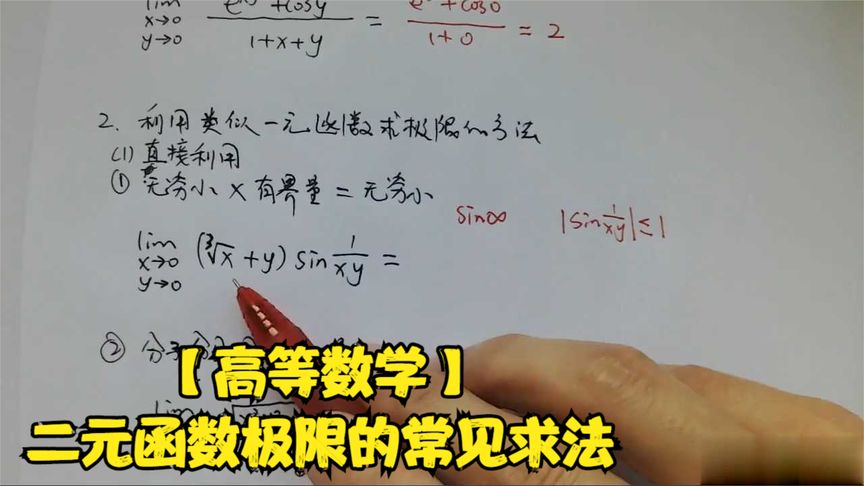 lim x→0 y→0 (e^xy + cosy)/(1+x+y) = (e^0 + cos0)/(1+0) = 2
2. 利用类似一元函数求极限的方法
(1) 直接利用
① 无穷小 × 有界量 = 无穷小
sin∞ |sin 1/xy| ≤ 1
lim x→0 y→0 (∛x + y) sin 1/xy =
② 分子分
lim
【高等数学】
二元函数极限的常见求法